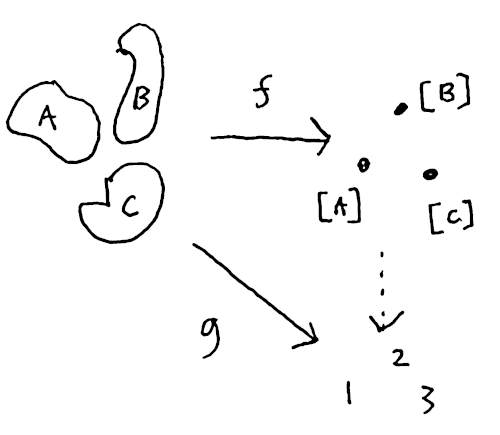 A
B
C
f
[B]
[A]
[C]
g
1
2
3